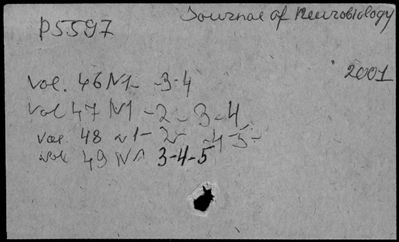 P5597 Journal of Neurobiology
2001
vol. 46 N1- -3-4
vol 47 N1 -2-3-4
vol. 48 N1- 2- -4-5-
vol. 49 N1 3-4-5